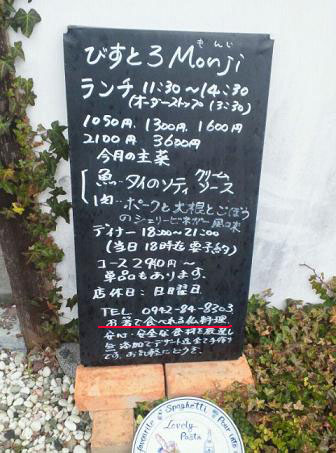 もんじ
びすとろ Monji
ランチ 11:30〜14:30
(オーダーストップ 13:30)
1050円, 1300円, 1600円
2100円 3600円
今月の主菜
魚…タイのソティ クリームソース
肉…ポークと大根とごぼう
のシェリービネガー風味
ディナー 18:00〜21:00
(当日18時迄要予約)
コース 2940円〜
単品もあります。
店休日：日曜日
TEL 0942-84-8303
お箸で食べれる仏料理
安心・安全な食材を厳選し
無添加でデザート迄全て手作り
です。お気軽にどうぞ。
favourite Spaghetti
Lovely
Pasta